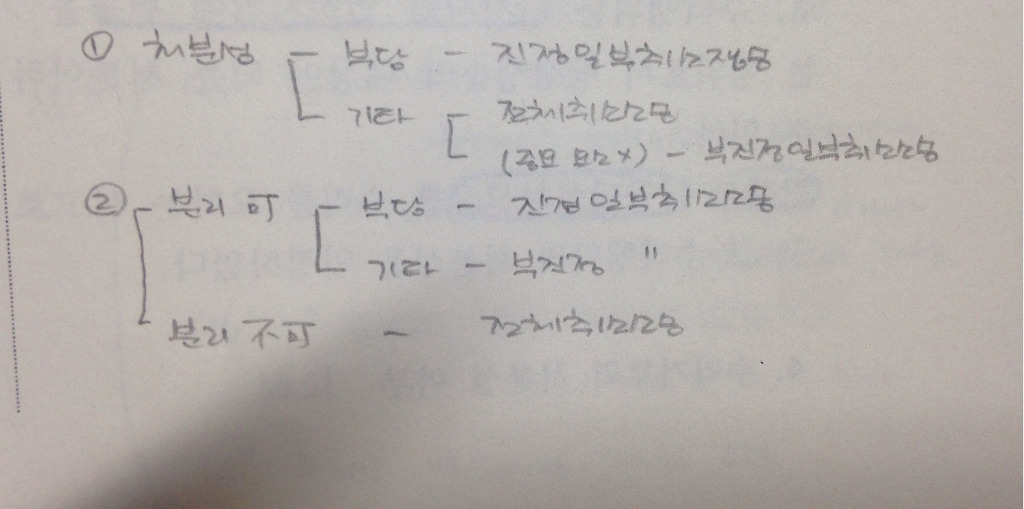 ① 처분성 - 부담 - 진정일부취소쟁송
기타 전체취소소송
(중요 요소 x) - 부진정일부취소소송
② 분리 可 - 부담 - 진정일부취소소송
기타 - 부진정 "
분리 不可 - 전체취소소송